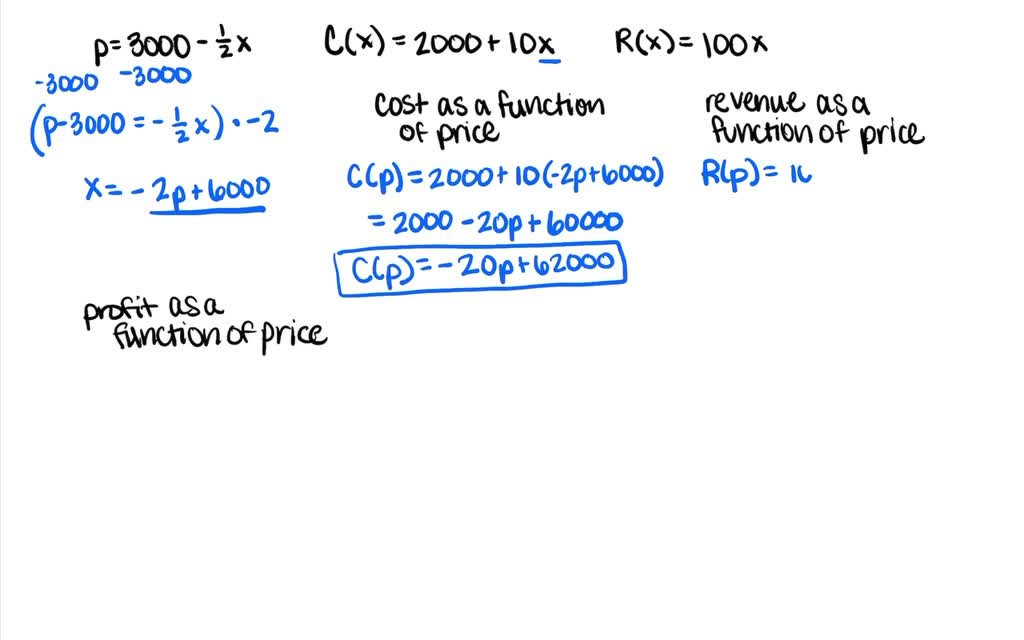 p = 3000 - 1/2 x   C(x) = 2000 + 10x   R(x) = 100x
-3000 -3000
(p - 3000 = - 1/2 x) • -2
x = - 2p + 6000
cost as a function
of price
C(p) = 2000 + 10(-2p + 6000)
= 2000 - 20p + 60000
C(p) = - 20p + 62000
revenue as a
function of price
R(p) = 10
profit as a
function of price